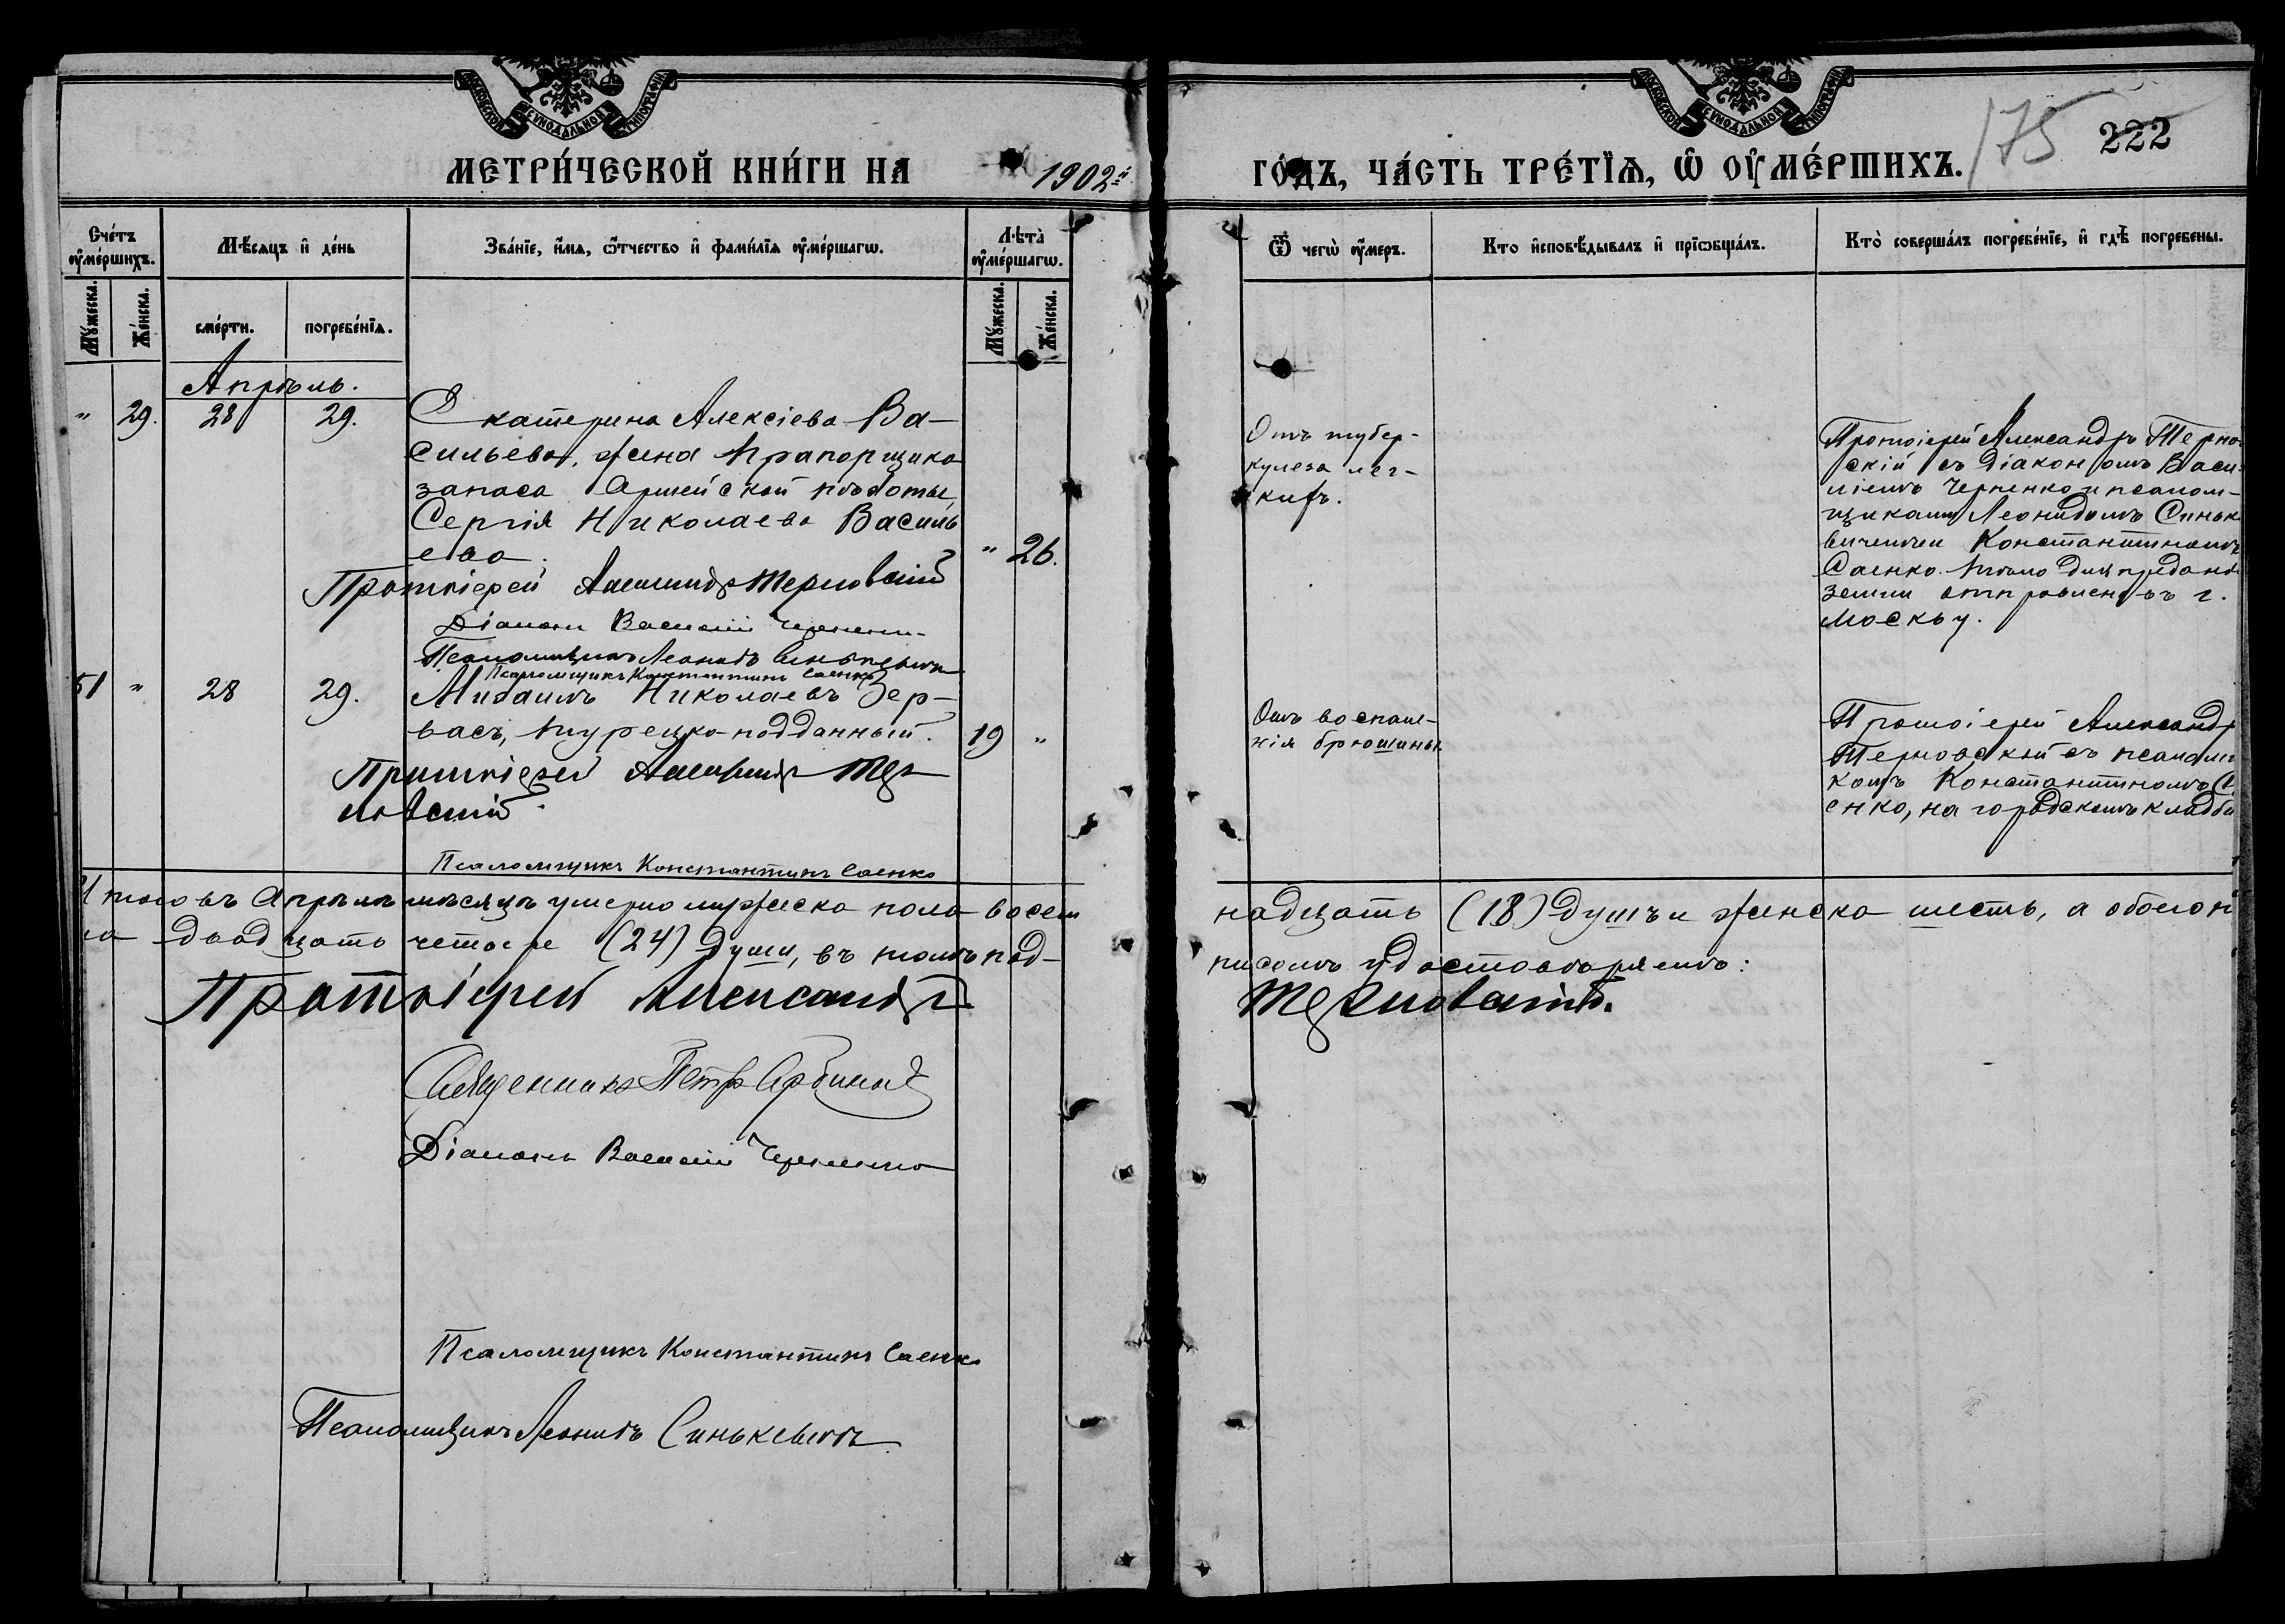 МОСКОВСКОЙ СѴНОДАЛЬНОЙ ТИПОГРАФІИ
МОСКОВСКОЙ СѴНОДАЛЬНОЙ ТИПОГРАФІИ
175 222
МЕТРИ́ЧЕСКОЙ КНИ́ГИ НА 1902й ГО́ДЪ, ЧА́СТЬ ТРЕ́ТЇѦ, Ѡ ОУ҆МЕ́РШИХЪ.
Сче́тъ оу҆ме́ршихъ.
Мѣ́сяцъ и҆ де́нь
Зва́нїе, и҆́мя, ѻ҆́тчество и҆ фами́лїя оу҆ме́ршагѡ.
Лѣта̀ оу҆ме́ршагѡ.
Ѿ чегѡ̀ оу҆́меръ.
Кто и҆сповѣ́дывалъ и҆ прїѡбща́лъ.
Кто̀ соверша́лъ погребе́нїе, и҆ гдѣ̀ погребены.
Му́жеска.
Же́нска.
сме́рти.
погребе́нїѧ.
Му́жеска.
Же́нска.
Апрѣль.
" 29. 28 29.
Екатерина Алексіева Ва-
сильева, жена прапорщика
запаса Армейской пѣхоты
Сергія Николаева Василь
ева.
" 26.
Протоіерей Александръ Терновскій
Діаконъ Василій Черненко
Псаломщикъ Леонидъ Синькевичъ
Псаломщикъ Константинъ Саенко
Отъ тубер-
кулеза лег-
кихъ.
Протоіерей Александръ Терно
скій съ діакономъ Васи
ліемъ Черненко и псалом-
щиками Леонидомъ Синьк
вичемъ и Константиномъ
Саенко. Тѣло для преданія
земли отправлено въ г.
Москву.
51 " 28 29.
Михаилъ Николаевъ Зер-
васъ, турецко-подданный.
19 "
Протоіерей Александръ Тер
новскій.
Псаломщикъ Константинъ Саенко
Отъ воспале-
нія брюшины
Протоіерей Александръ
Терновскій съ псаломщ
комъ Константиномъ Са
енко, на городскомъ кладби
Итого въ Апрѣлѣ мѣсяцѣ умерло мужеска пола восем надцать (18) душъ и женска шесть, а обоего п
ла двадцать четыре (24) души, въ томъ под- писомъ удостовѣряемъ:
Протоіерей Александръ Терновскій.
Священникъ Петръ
Діаконъ Василій Черненко
Псаломщикъ Константинъ Саенко
Псаломщикъ Леонидъ Синькевичъ